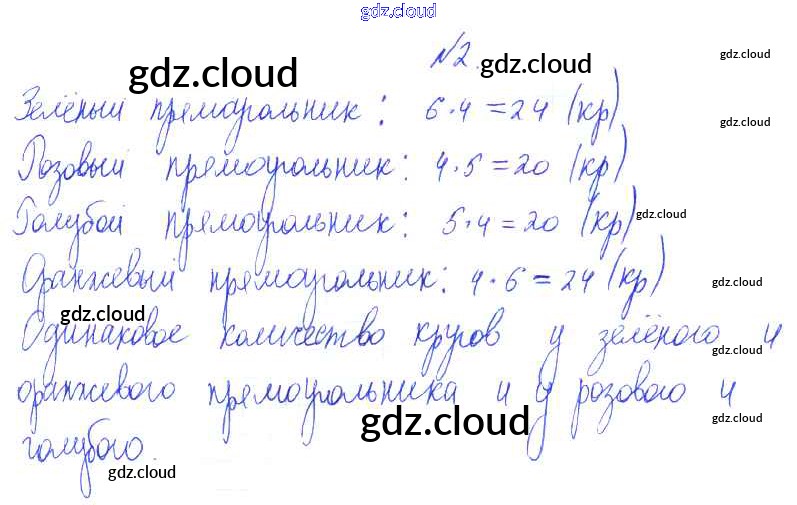 gdz.cloud
№2.
gdz.cloud gdz.cloud gdz.cloud
Зелёный прямоугольник: 6·4=24 (кр)
gdz.cloud
Розовый прямоугольник: 4·5=20 (кр)
Голубой прямоугольник: 5·4=20 (кр)
gdz.cloud
Оранжевый прямоугольник: 4·6=24 (кр)
gdz.cloud
gdz.cloud
Одинаковое количество кругов у зелёного и
gdz.cloud
оранжевого прямоугольника и у розового и
gdz.cloud gdz.cloud
голубого.
gdz.cloud